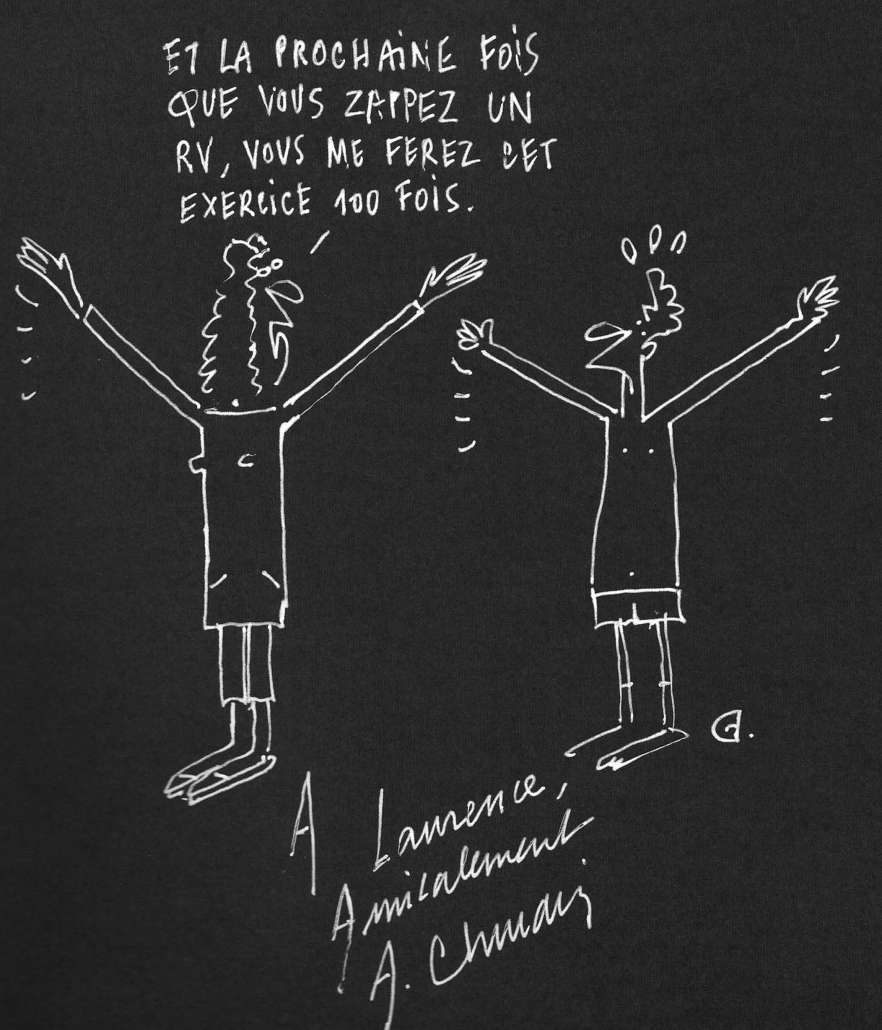 ET LA PROCHAINE FOIS
QUE VOUS ZAPPEZ UN
RV, VOUS ME FEREZ CET
EXERCICE 100 FOIS.
G.
A Laurence,
Amicalement
A.